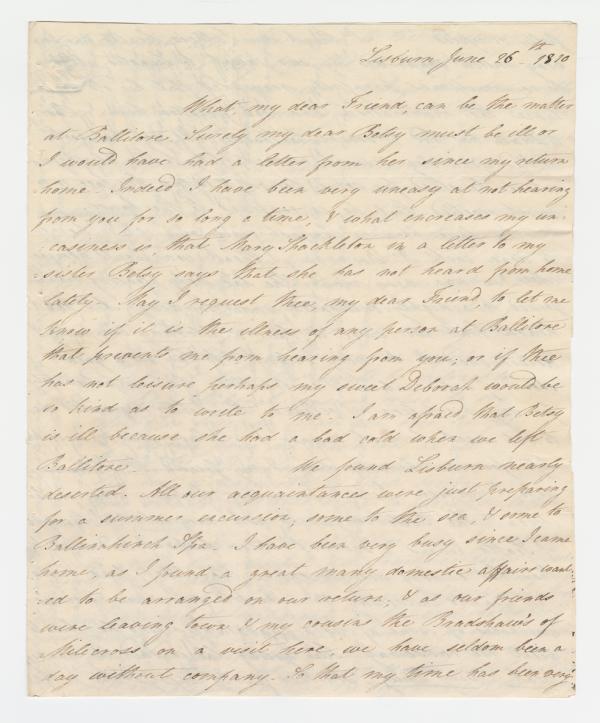 Lisburn June 26th 1810
What, my dear Friend, can be the matter
at Ballitore. Surely my dear Betsy must be ill or
I would have had a letter from her since my return
home. Indeed I have been very uneasy at not hearing
from you for so long a time, & what increases my un-
easiness is, that Mary Shackleton in a letter to my
sister Betsy says that she has not heard from home
lately. May I request thee, my dear Friend, to let me
know if it is the illness of any person at Ballitore
that prevents me from hearing from you; or if thee
has not leisure perhaps my sweet Deborah would be
so kind as to write to me. I am afraid that Betsy
is ill because she had a bad cold when we left
Ballitore. We found Lisburn nearly
deserted. All our acquaintances were just preparing
for a summer excursion, some to the sea, & some to
Ballinahinch Spa. I have been very busy since I came
home, as I found a great many domestic affairs want-
-ed to be arranged on our return; & as our friends
were leaving town & my cousins the Bradshaw's of
Milecross on a visit here, we have seldom been a
day without company. So that my time has been very